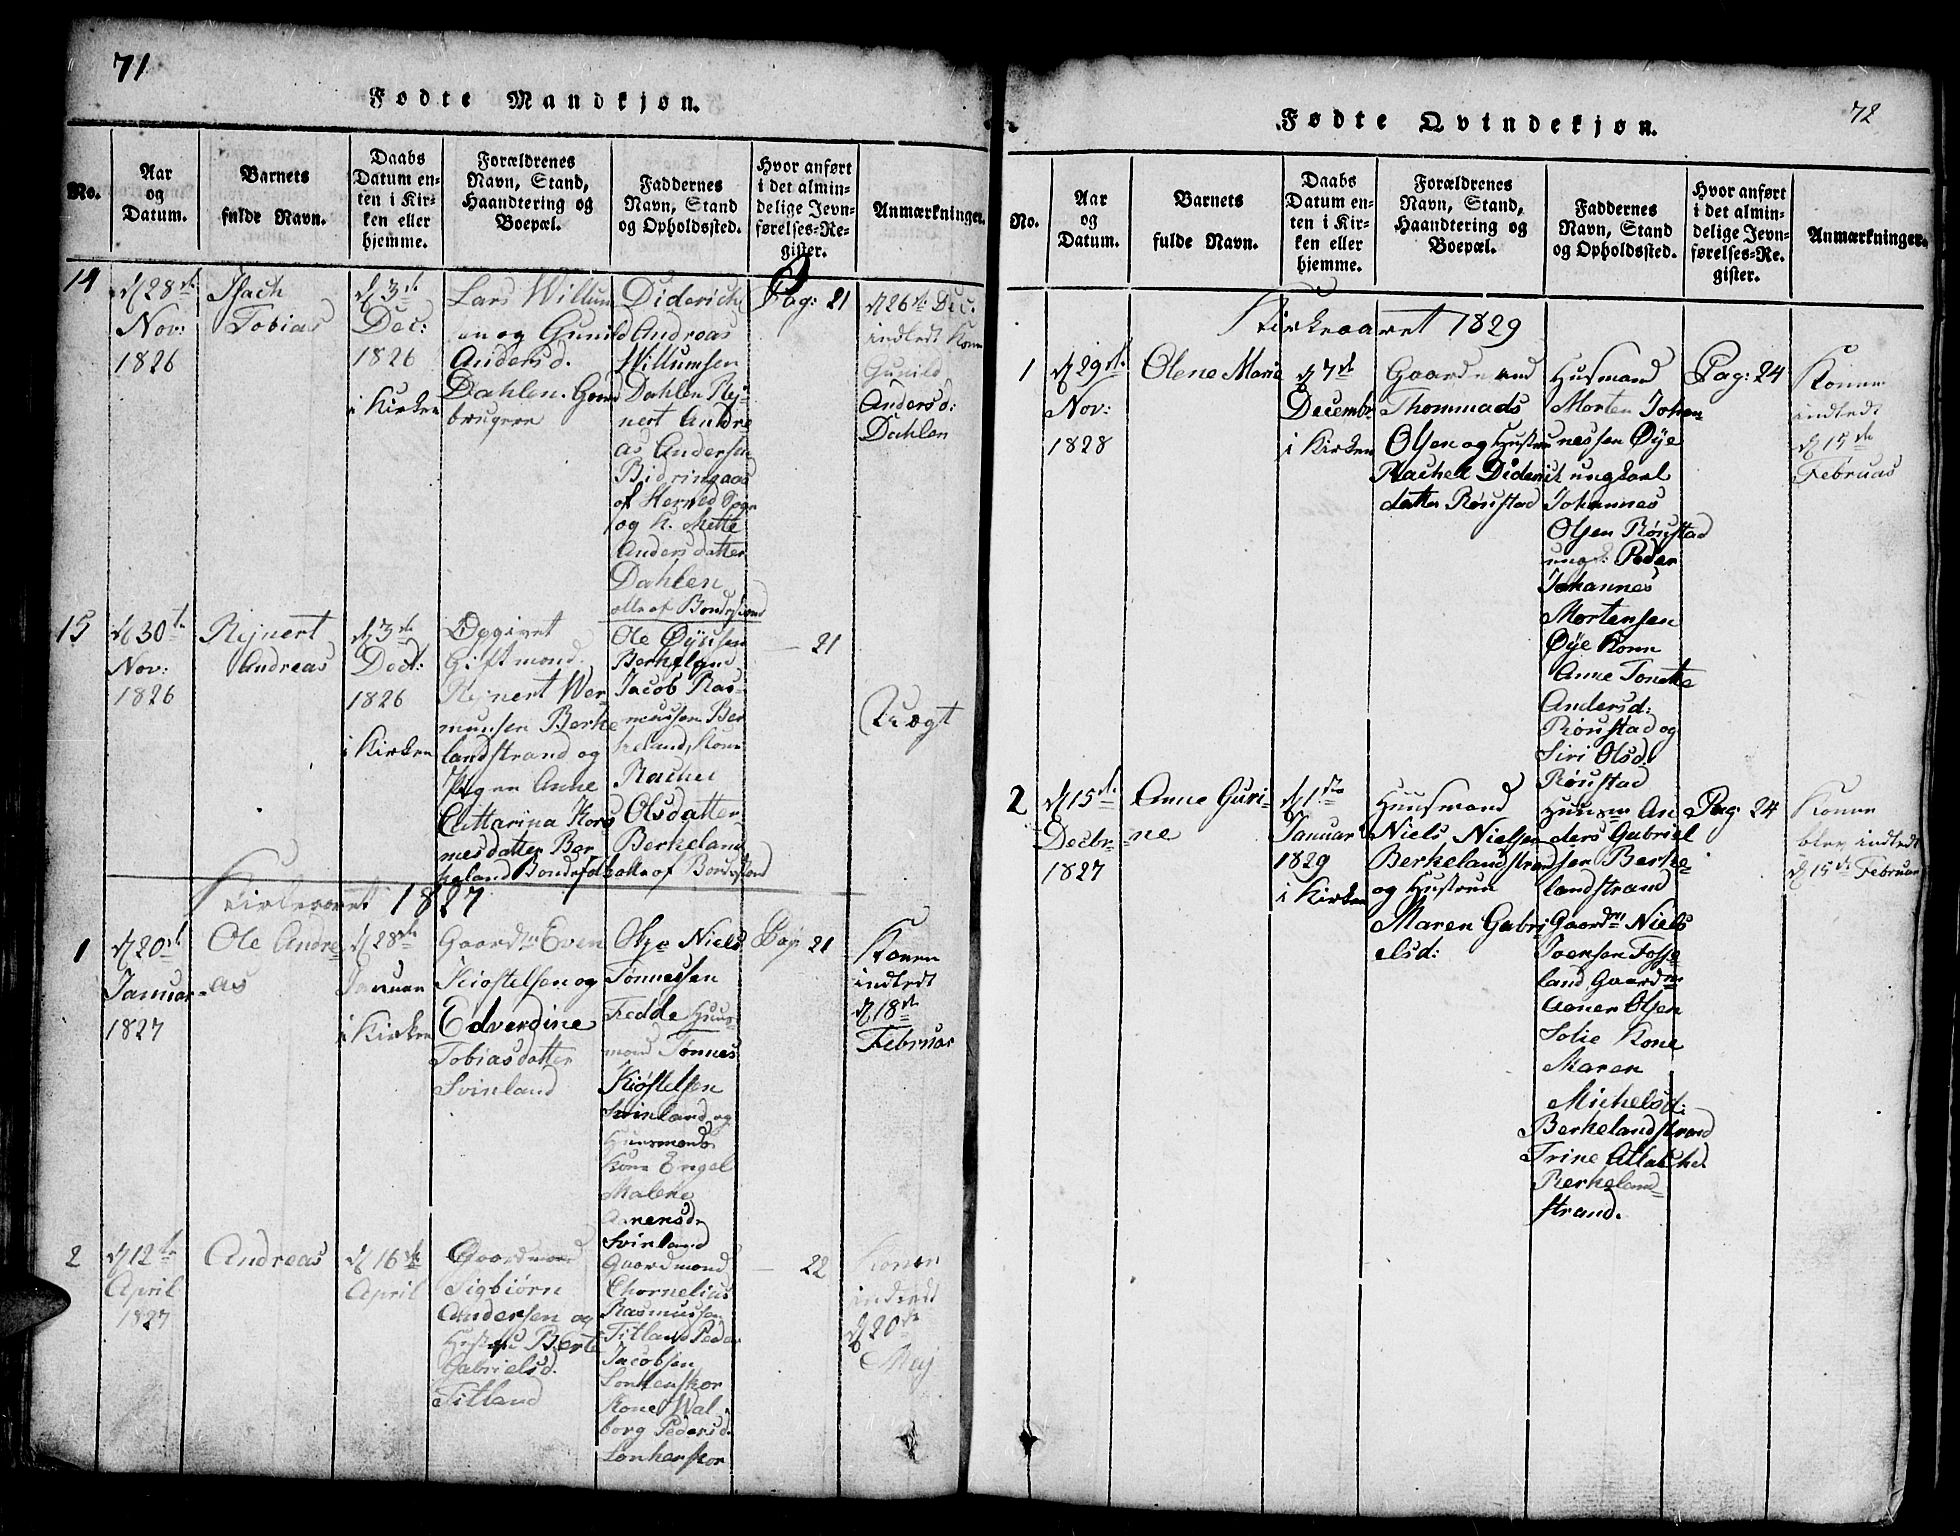 71
Fødte Mandkjøn.
No.
Aar
og
Datum.
Barnets
fulde Navn.
Daabs
Datum en-
ten i Kir-
ken eller
hjemme.
Forældrenes
Navn, Stand,
Haandtering og
Boepæl.
Faddernes
Navn, Stand
og Opholdssted.
Hvor anført
i det almin-
delige Jevn-
førelses-Re-
gister.
Anmærkninger.
14
d 28de
Nov:
1826
Isach
Tobias
d 3de
Dec:
1826
i Kirken
Lars Willum
sen og Gunild
Andersd.
Dahlen. Gaard
brugere
Diderich
Andreas
Willumsen
Dahlen Rej-
nert Andre
as Andersen
Bidringaas
af Herred Sogn
og K. Mette
Anders datter
Dahlen
alle af Bondestand
Pag: 21
d 26de Dec.
indledt Konen
Gunild
Andersd:
Dahlen
15
d 30te
Nov:
1826
Rejnert
Andreas
d 3de
Dec:
1826
i Kirken
Opgivet
Giftmand
Rejnert Wer-
munsen Berke
landstrand og
Pigen Anne
Cattarina Hors
mesdatter Ber
keland Bondefolk
Ole Øyusen
Berkeland
Jacob Ras-
mussen Ber
keland, Kone
Rachel
Olsdatter
Berkeland
alle af Bondestand
— 21
Uægt
Kirkeaaret 1827
1
d 20de
Januar
1827
Ole Andre
as
d 28de
Januar
i Kirken
Gaardm Even
Kiøstelsen og
Edverdine
Tobiasdatter
Svinland
Niels
Tønnessen
Fedde Huus-
mand Tønnes
Kiøstelsen
Svinland og
Huusmands
Kone Engel
Malene
Arensd.
Svinland
Pag: 21
Konen
indledt
d 18de
Februar
2
d 12te
April
1827
Andreas
d 16de
April
Gaardmand
Sigbiørn
Andersen og
Hustru Berte
Gabrielsd.
Titland
Gaardmand
Chornelius
Rasmussen
Titland Peder
Jacobsen
Lonkerskor
Kone Wal-
borg Pedersd.
Lonkerskor
— 22
Konen
indledt
d 20de
Maj
72
Fødte Qvindekjøn.
No.
Aar
og
Datum.
Barnets
fulde Navn.
Daabs
Datum en-
ten i Kir-
ken eller
hjemme.
Forældrenes
Navn, Stand,
Haandtering og
Boepæl.
Faddernes
Navn, Stand
og Opholdssted.
Hvor anført
i det almin-
delige Jevn-
førelses-Re-
gister.
Anmærkninger.
Kirkeaaret 1829
1
d 29de
Nov:
1828
Olene Marie
d 7de
Decembr
i Kirken
Gaardmand
Thommads
Olsen og Hustru
Rachel Diderik
datter Røustad
Husmand
Morten Johan-
nessen Øye
ungkarl
Johannes
Olsen Røustad
ungk: Peder
Johannes
Mortensen
Øye Kone
Anne Tonette
Andersd:
Røustad og
Siri Olsd.
Røustad
Pag: 24
Konen
indledt
d 15de
Februar
2
d 15de
Decbr
1827
Anne Guri-
ne
d 1ste
Januar
1829
i Kirken
Huusmand
Niels Nielsen
Berkelandstrand
og Hustrue
Maren Gabri
elsd:
Huusm An
ders Gabriel
sen Berke-
landstrand
Gaardm Niels
Joensen Fosse
land Gaardm
Aaner Olsen
Solie Kone
Maren
Michelsd:
Berkelandstrand
Trine
Berkeland-
strand.
Pag: 24
Konen
blev indledt
d 15de Februar